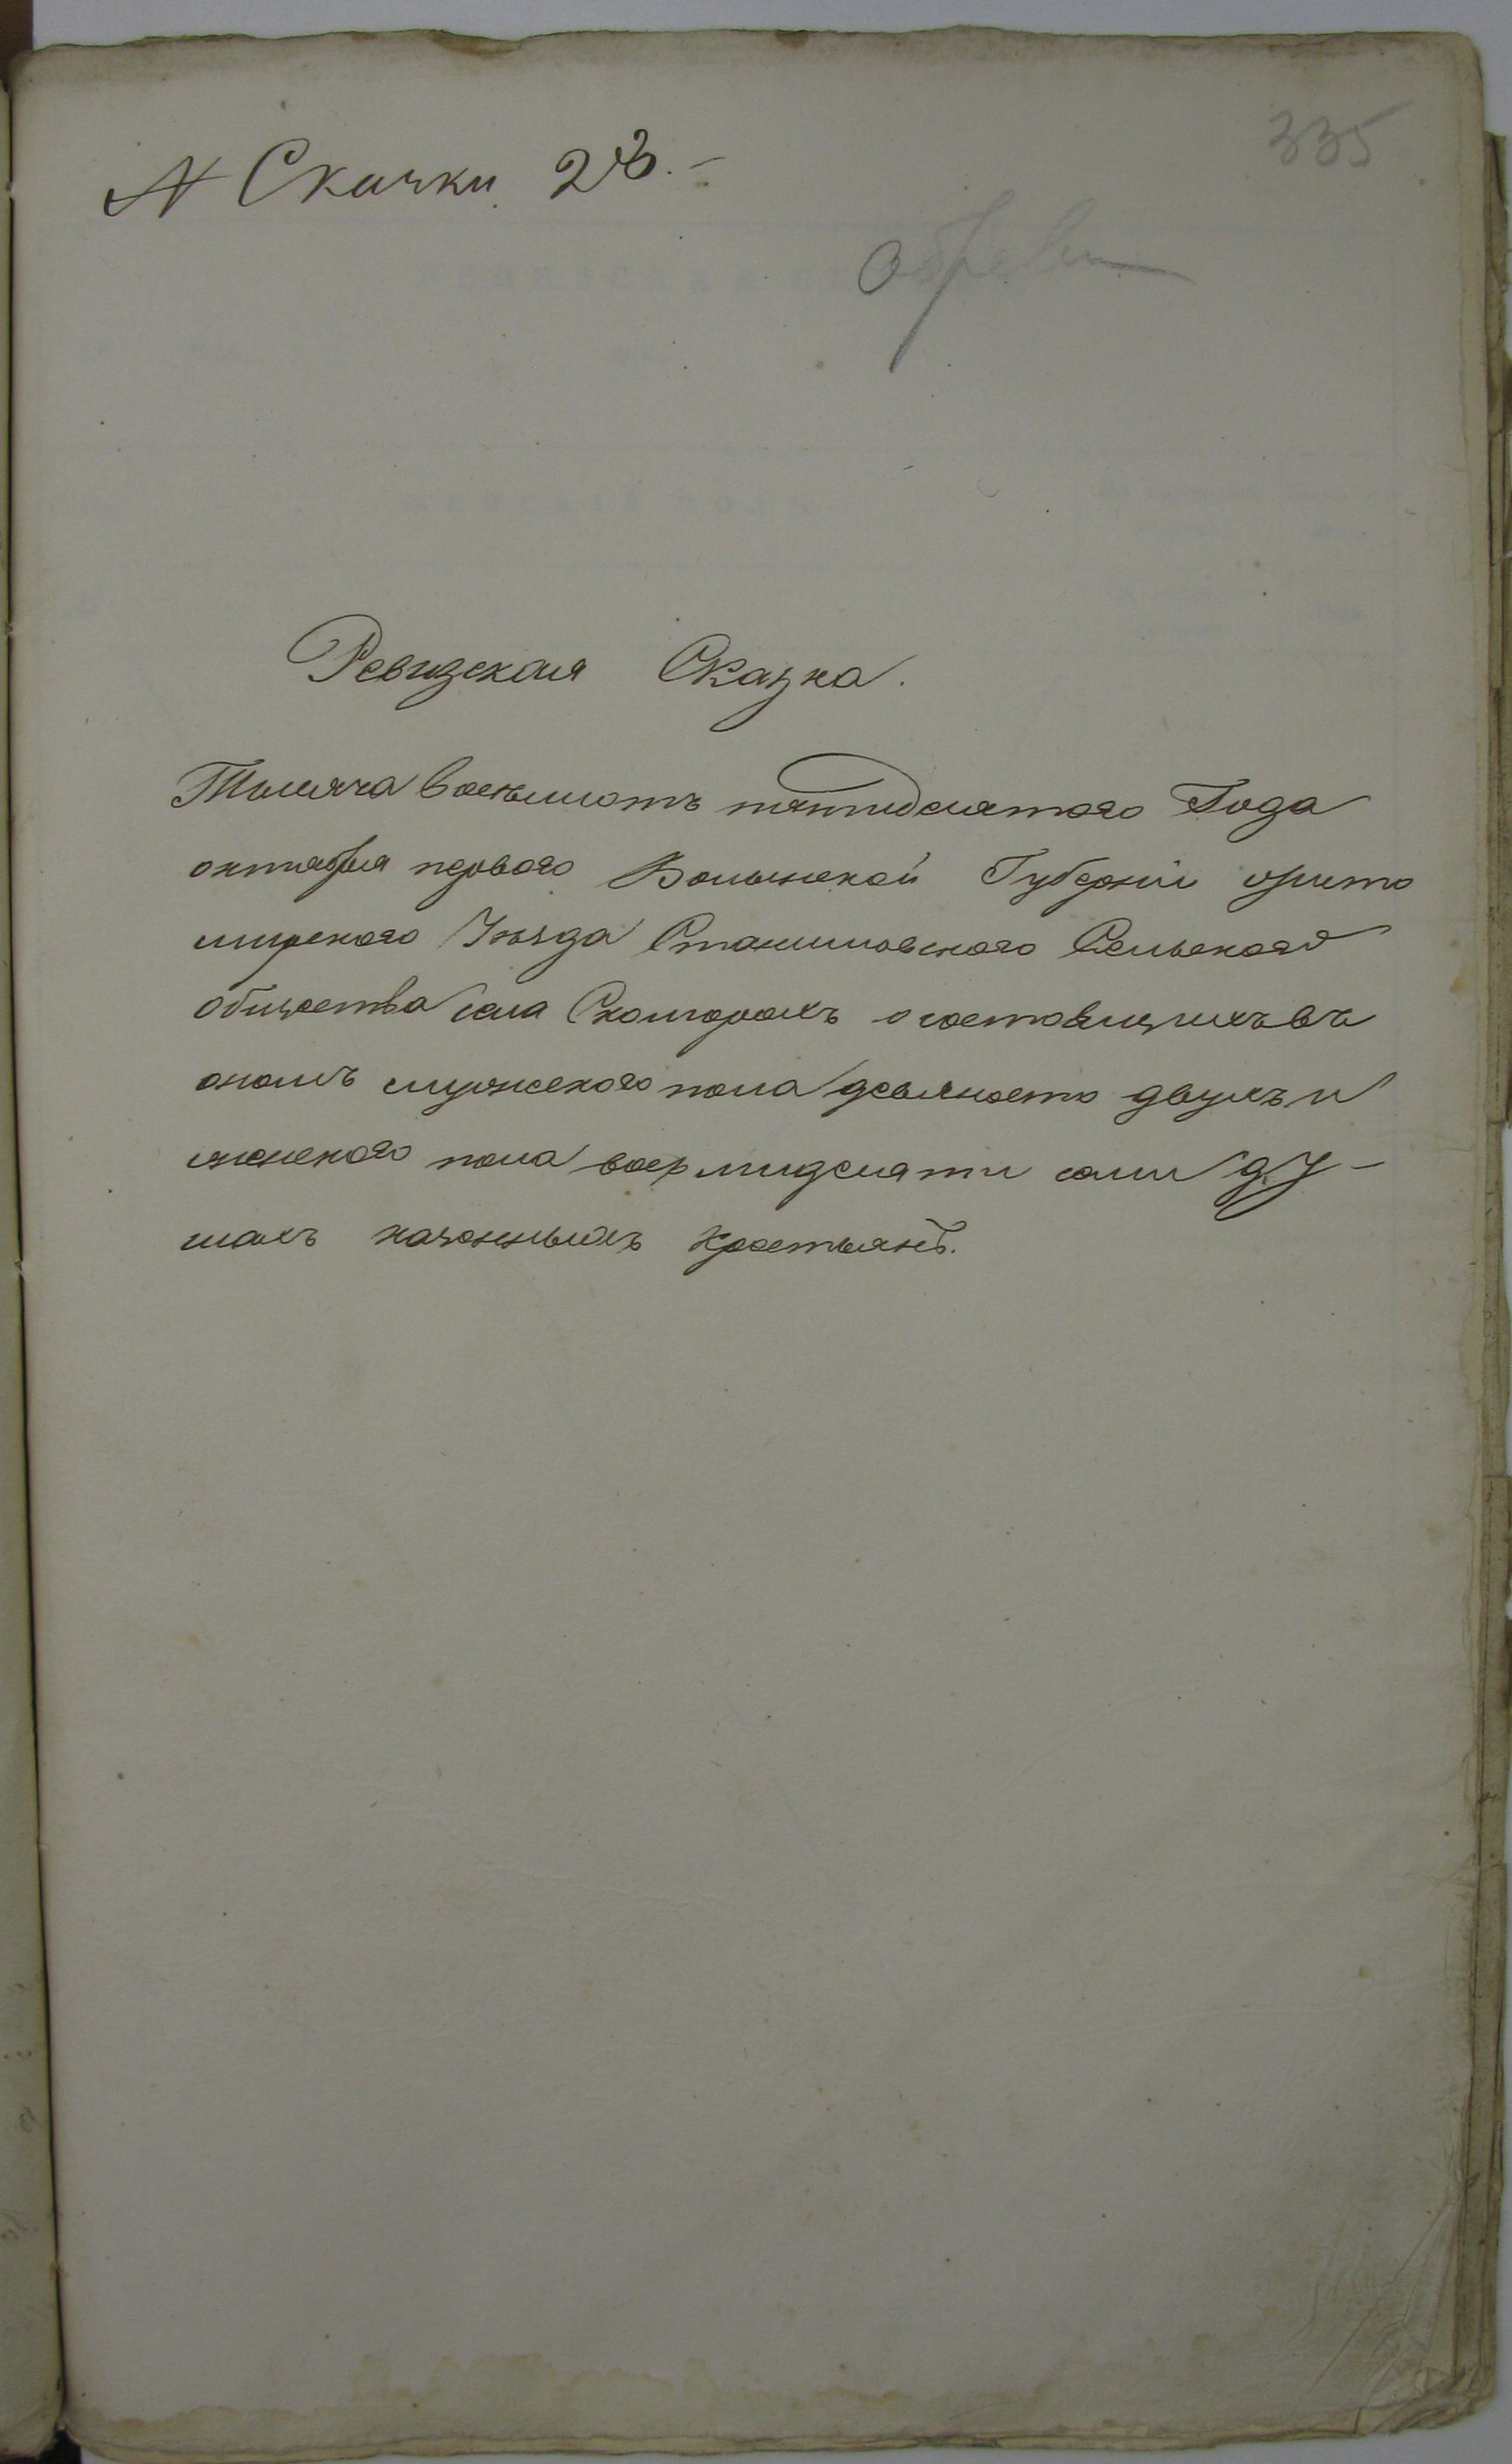 335
№ Скачки 23.-
Ревизская Сказка.
Тысяча восемьсотъ пятидесятого Года
октября первого Волынской Губерніи жито
мирского Уезда Станишовского Сельского
общества села Скоморохъ о состоящихъ въ
ономъ мужеского пола девяносто двухъ и
женского пола восмидесяти семи ду-
шахъ казенныхъ крестьянъ.